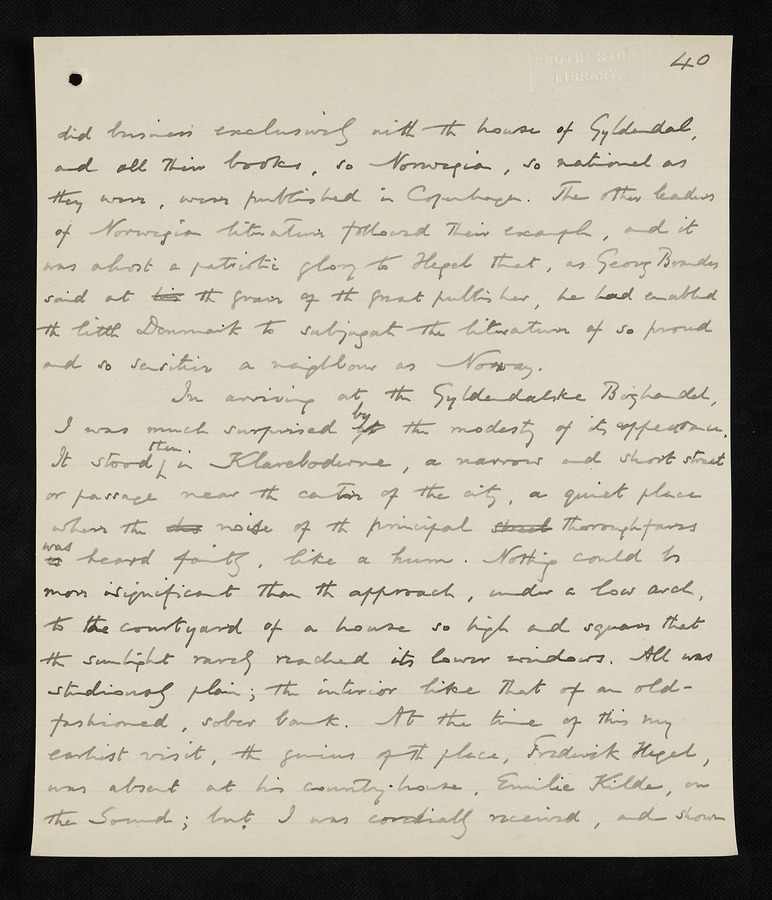 BROTHERTON
LIBRARY.
40
did business exclusively with the house of Gyldendal,
and all their books, so Norwegian, so national as
they were, were published in Copenhagen. The other leaders
of Norwegian literature followed their example, and it
was almost a patriotic glory to Hegel that, as Georg Brandes
said at his the grave of the great publisher, he had enabled
the little Denmark to subjugate the literature of so proud
and so sensitive a neighbour as Norway.
In arriving at the Gyldendalske Boghandel,
I was much surprised by at the modesty of its appearance.
It stood then in Klareboderne, a narrow and short street
or passage near the centre of the city, a quiet place
where the noise of the principal street thoroughfares
was is heard faintly, like a hum. Nothing could be
more insignificant than the approach, under a low arch,
to the courtyard of a house so high and square that
the sunlight rarely reached its lower windows. All was
studiously plain; the interior like that of an old-
fashioned, sober bank. At the time of this my
earliest visit, the genius of the place, Frederick Hegel,
was absent at his country-house, Emilie Kilde, on
the Sound; but I was cordially received, and shown